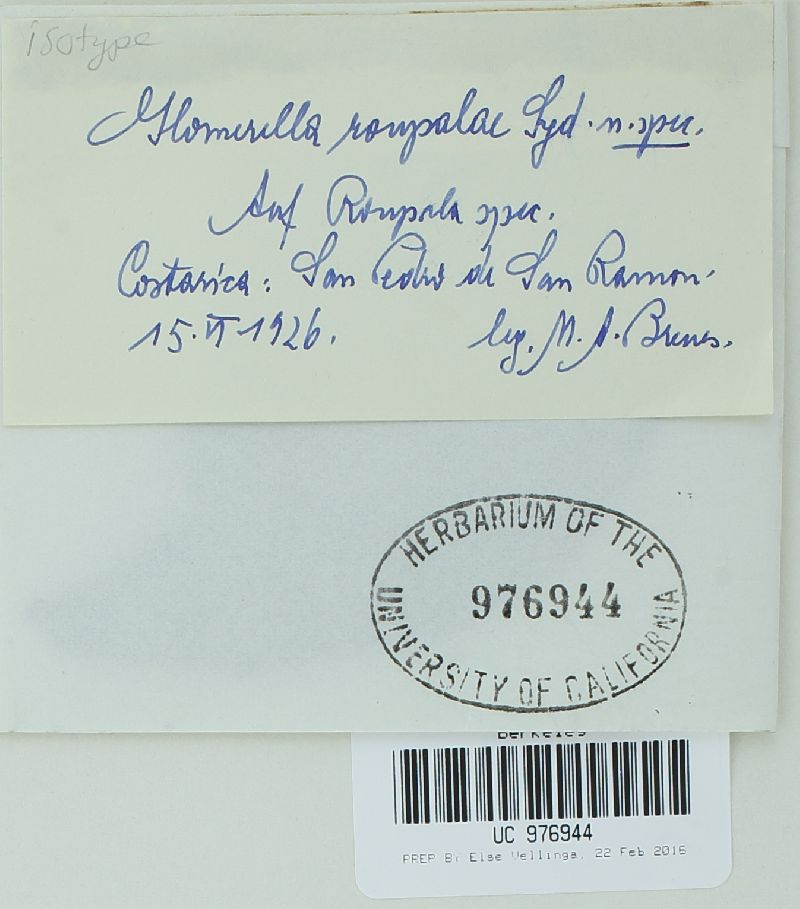 isotype
Glomerella roupalae Syd. n. spec.
Auf Roupala spec.
Costarica: San Pedro de San Ramon.
15.VI 1926. leg. M. A. Brenes.
HERBARIUM OF THE
976944
UNIVERSITY OF CALIFORNIA
Berkeley
UC 976944
PREP BY Else Vellinga, 22 Feb 2016